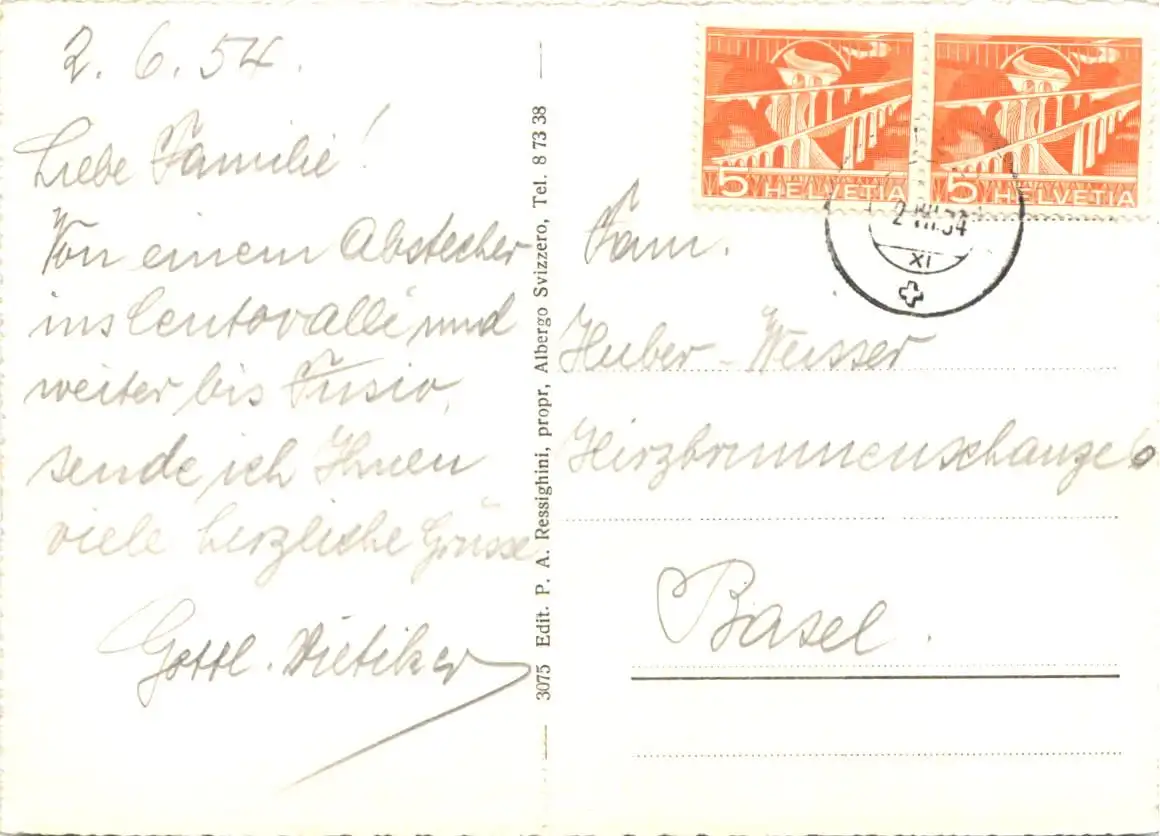 2. 6. 54.
Liebe Familie!
Von einem Abstecher
ins Centovalli und
weiter bis Fusio,
sende ich Ihnen
viele herzliche Grüsse
Gottl. Dietiker
3075 Edit. P. A. Ressighini, propr, Albergo Svizzero, Tel. 8 73 38
5 HELVETIA
5 HELVETIA
XI
Fam.
Huber-Wusser
Hirzbrunnenschanze 6
Basel.